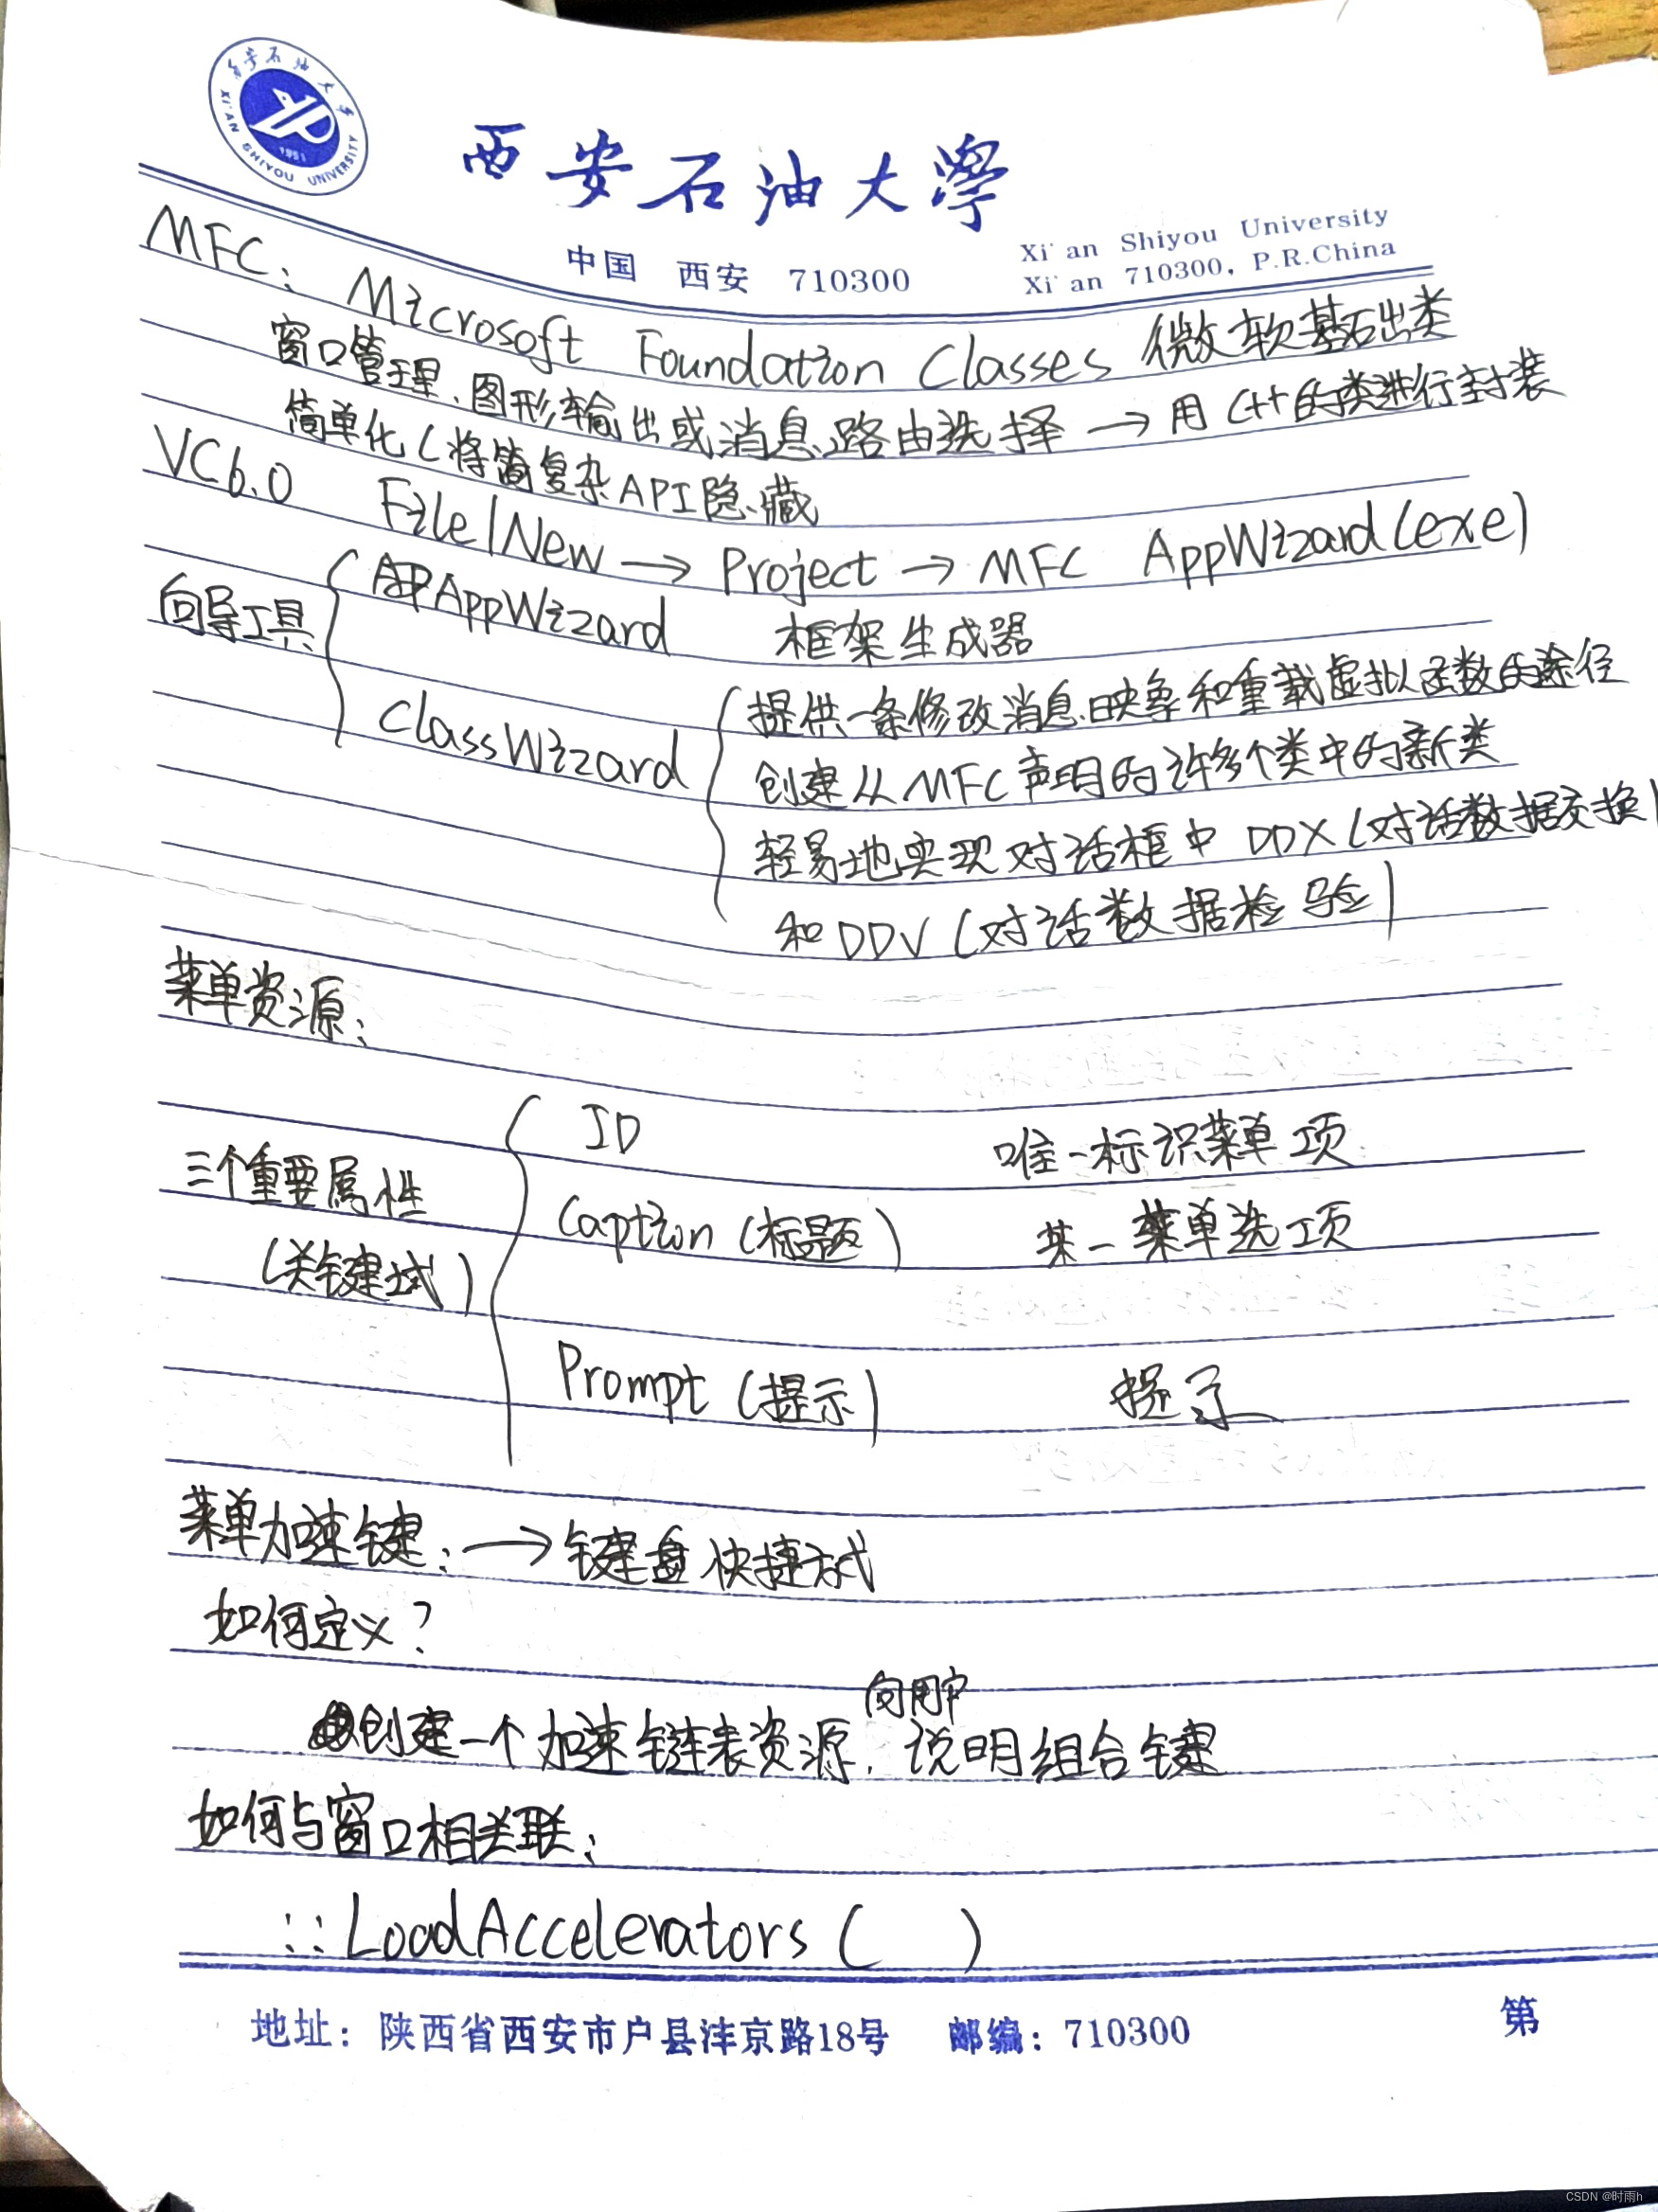 西安石油大学
XI'AN SHIYOU UNIVERSITY
1951
西安石油大學
中国 西安 710300
Xi'an Shiyou University
Xi'an 710300, P.R.China
MFC: Microsoft Foundation Classes 微软基础类
窗口管理、图形输出或消息路由选择 → 用C++的类进行封装
简单化(将复杂API隐藏
VC6.0 File|New → Project → MFC AppWizard(exe)
向导工具
AppWizard 框架生成器
ClassWizard
提供一条修改消息映象和重载虚拟函数的途径
创建从MFC声明的许多个类中的新类
轻易地实现对话框中DDX(对话数据交换)
和DDV(对话数据检验)
菜单资源:
三个重要属性
(关键域)
ID 唯一标识菜单项
Caption(标题) 某一菜单选项
Prompt(提示) 提示
菜单加速键: → 键盘快捷方式
如何定义?
向用户
创建一个加速键表资源,说明组合键
如何与窗口相关联:
::LoadAccelerators( )
地址:陕西省西安市户县沣京路18号 邮编:710300 第
CSDN @时雨h